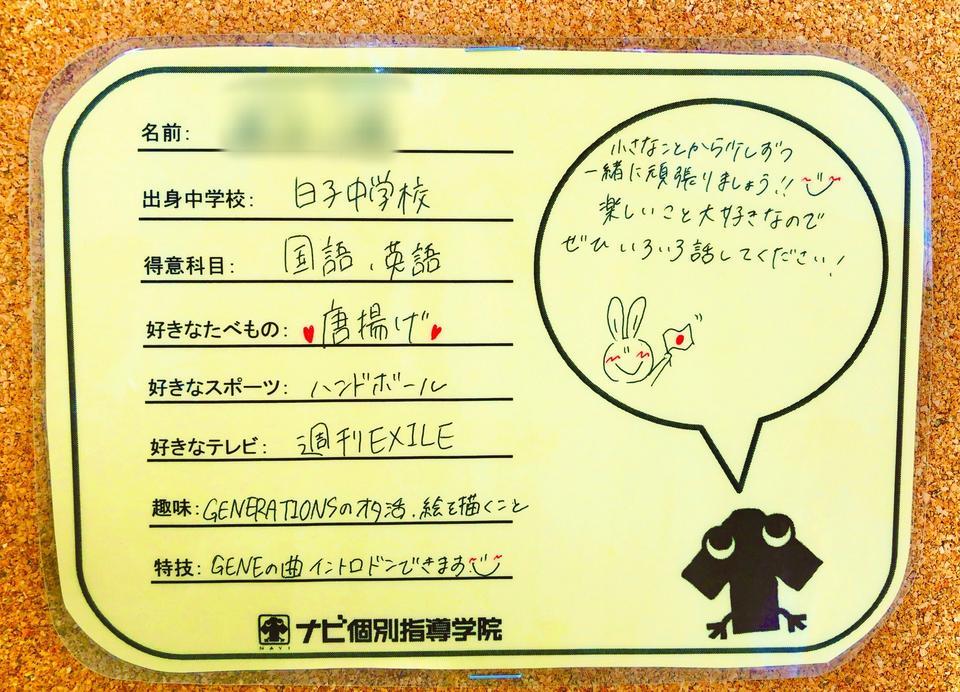 名前:
出身中学校: 白子中学校
得意科目: 国語、英語
好きなたべもの: 唐揚げ
好きなスポーツ: ハンドボール
好きなテレビ: 週刊EXILE
趣味: GENERATIONSのオタ活、絵を描くこと
特技: GENEの曲イントロドンできます
NAVI ナビ個別指導学院
小さなことから少しずつ
一緒に頑張りましょう!!
楽しいこと大好きなので
ぜひいろいろ話してください!